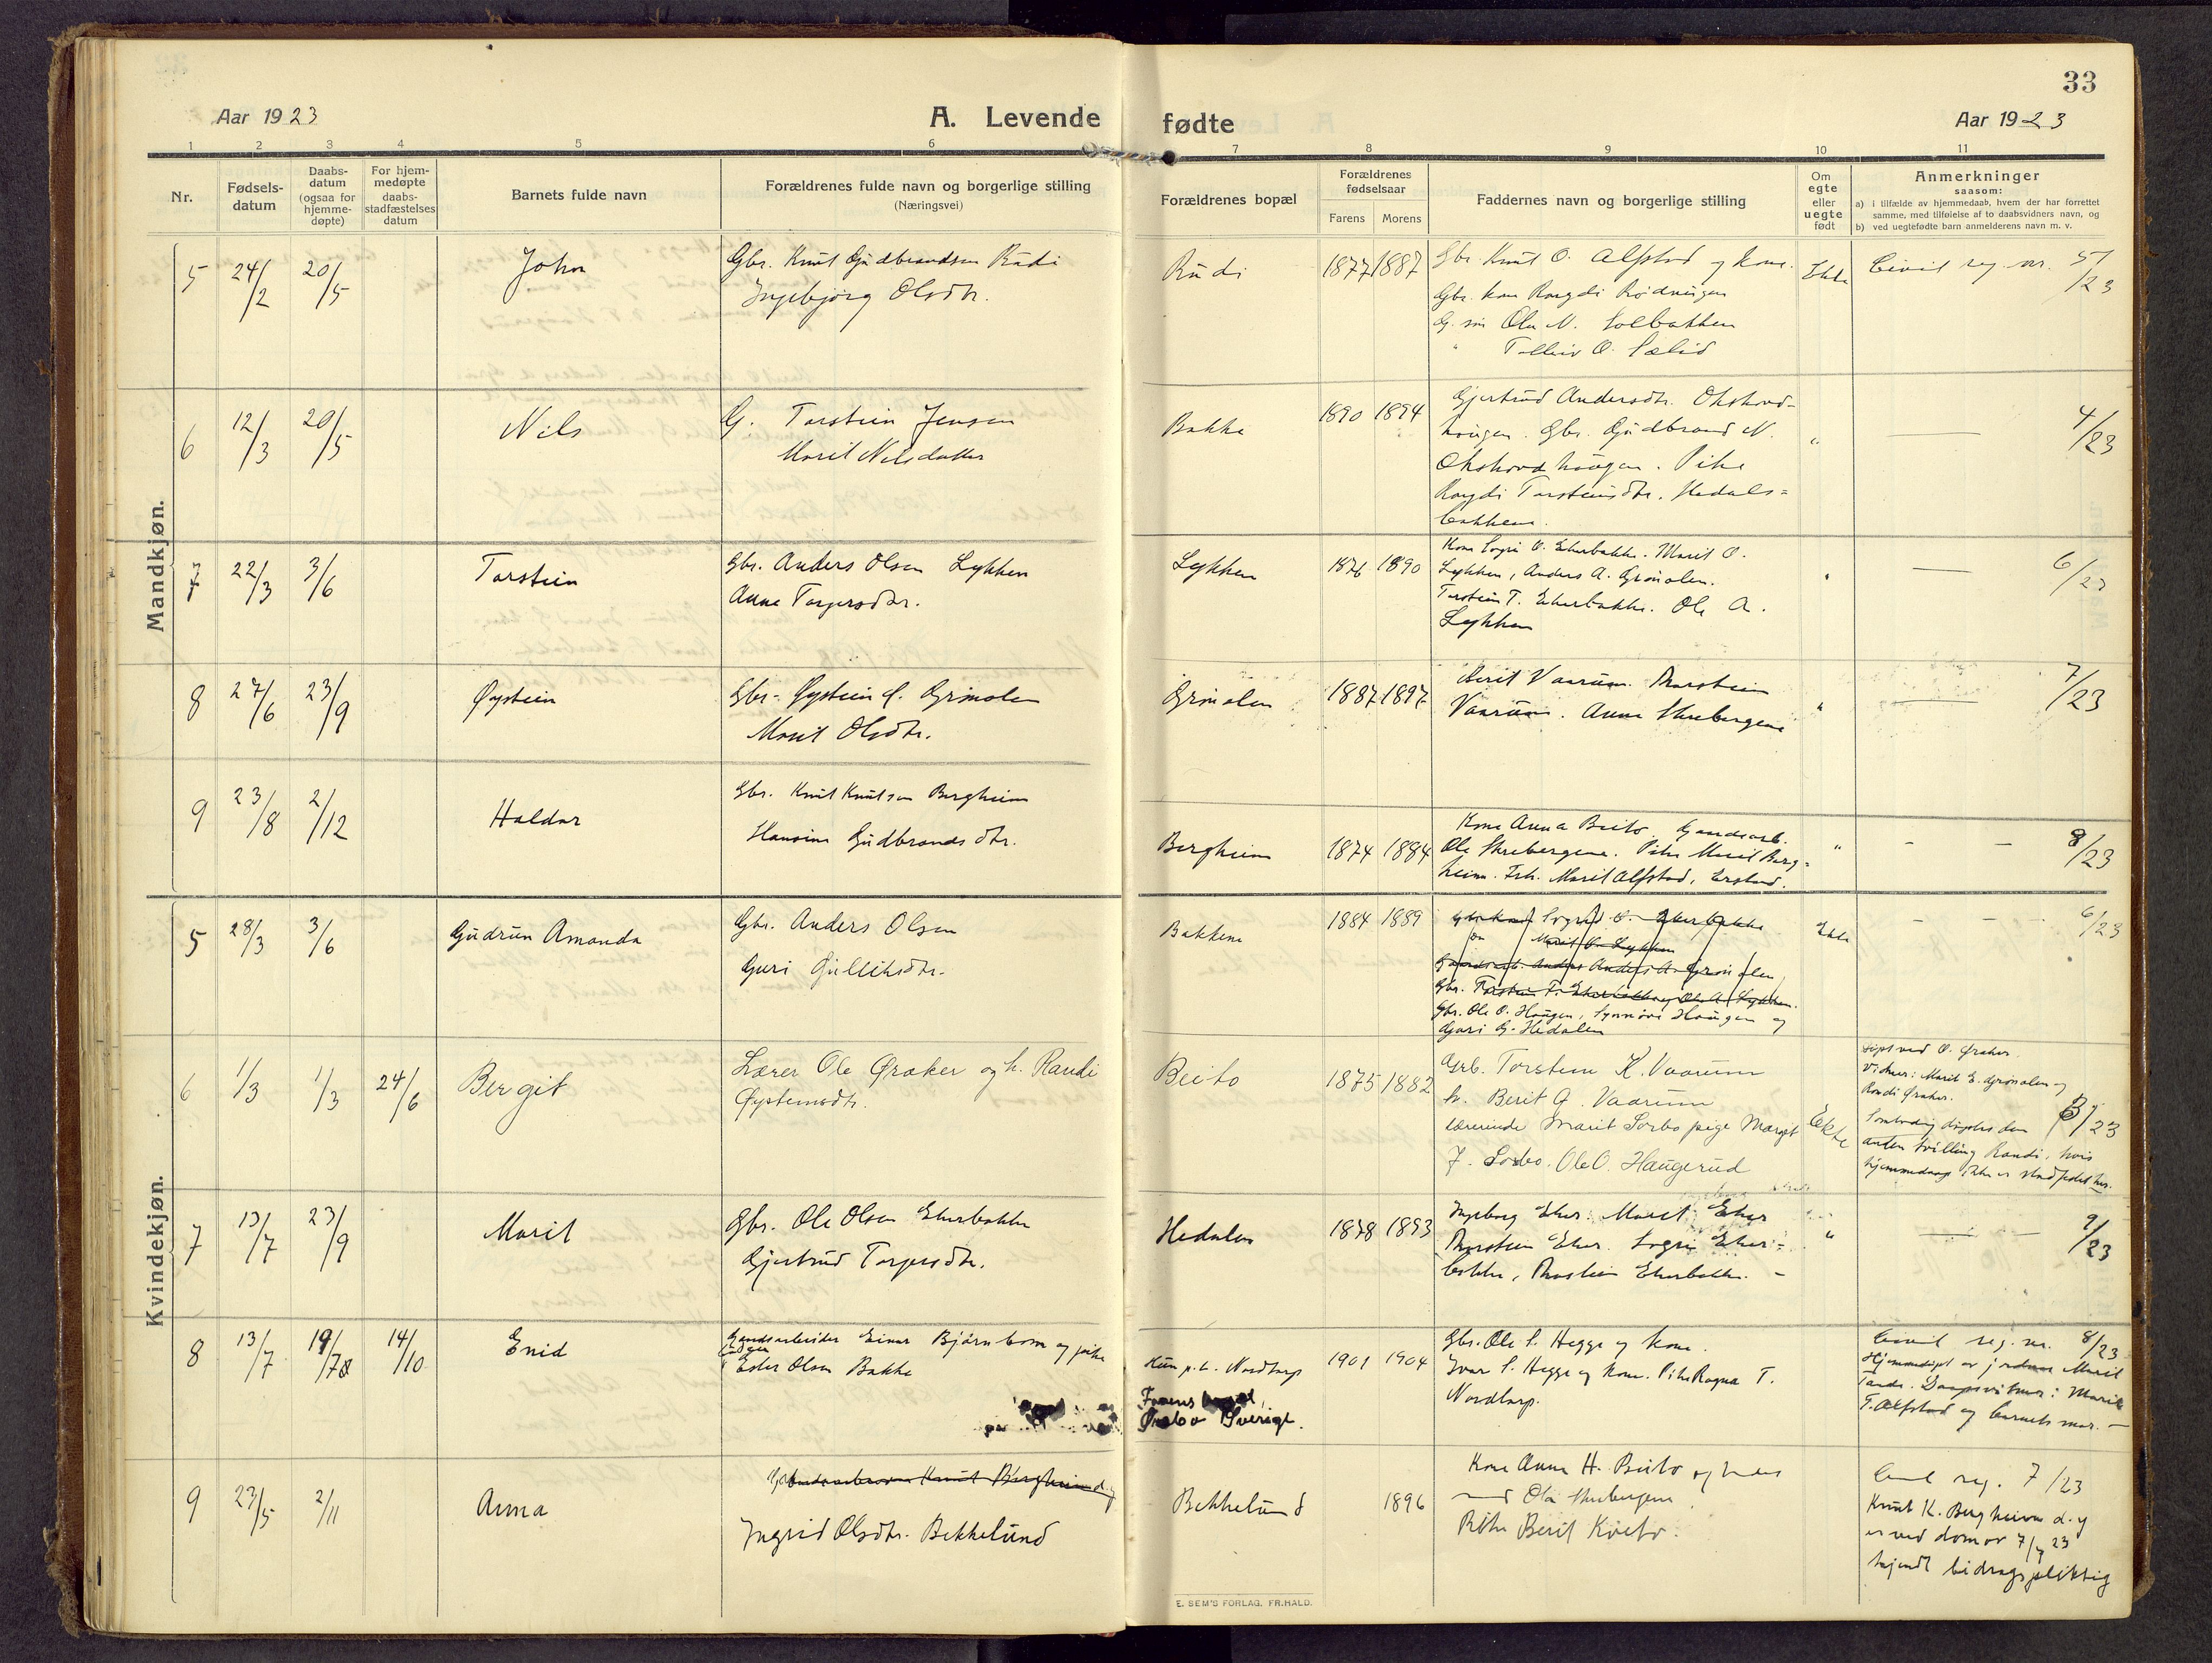 33
Aar 1923
A. Levende
fødte
Aar 1923
1 2 3 4 5 6 7 8 9 10 11
Nr.
Fødsels-
datum
Daabs-
datum
(ogsaa for
hjemme-
døpte)
For hjem-
medøpte
daabs-
stadfæstelses
datum
Barnets fulde navn
Forældrenes fulde navn og borgerlige stilling
(Næringsvei)
Forældrenes bopæl
Forældrenes
fødselsaar
Farens Morens
Faddernes navn og borgerlige stilling
Om
egte
eller
uegte
født
Anmerkninger
saasom:
a) i tilfælde av hjemmedaab, hvem der har forrettet
samme, med tilføielse af to daabsvidners navn, og
b) ved uegtefødte barn anmelderens navn m. v.
Mandkjøn.
5 24/2 20/5 John
Gbr. Knut Gudbrandsen Rudi
Ingebjørg Olsdtr.
Rudi 1877 1887
Gbr. Knut O. Alfstad og kone.
Gbr. kone Rangdi Rødningen
G. søn Ola N. Solbakken
" Tolleiv O. Sælid
Ekte
Civil reg. nr. 5/23
6 12/3 20/5 Nils
G. Torstein Jensen
Marit Nilsdatter
Bakke 1890 1894
Gjertrud Andersdtr. Okshovd-
haugen. Gbr. Gudbrand N.
Okshovdhaugen. Pike
Rangdi Torsteinsdtr. Hedals-
bakkene.
" 4/23
7 22/3 3/6 Torstein
Gbr. Anders Olsen Lykken
Anne Torgersdtr.
Lykken 1876 1890
Kone Sogni O. Ekerbakke. Marit O.
Lykken, Anders A. Grønolen.
Torstein T. Ekerbakke. Ole A.
Lykken
" 6/23
8 27/6 23/9 Øystein
Gbr. Øystein Grønolen
Marit Olsdtr.
Grønolen 1887 1897
Berit Vaarum. Thorstein
Vaarum. Anne Skrebergene
" 7/23
9 23/8 2/12 Haldor
Gbr. Knut Knutsen Bergheim
Hansine Gudbrandsdtr.
Bergheim 1874 1884
Kone Anna Beito. Gaardsarb.
Ole Skrebergene. Pike Marit Berg-
heim. Frk. Marit Alfstad,
" 8/23
Kvindekjøn.
5 28/3 3/6 Gudrun Amanda
Gbr. Anders Olsen
Guri Gulliksdtr.
Bakkene 1884 1889
Sogni O. Ekerbakke
Marit O. Lykken
Gaardsarb. Anders Anders A. Grønolen,
Gbr. Torstein T. Ekerbakke og Ole A. Lykken.
Gbr. Ole O. Haugen, Synnøve Haugen og
Guri G. Hedalen
Ekte
6/23
6 1/3 1/3 24/6 Bergit
Lærer Ole Øraker og h. Randi
Øysteinsdtr.
Beito 1875 1882
Grb. Torstein K. Vaarum
h. Berit G. Vaarum
lærerinde Marit Sørbo pige Margit
J. Sørbo. Ole O. Haugerud
Ekte
Døpt ved O. Øraker.
Vidner: Marit E. Grønolen og
Randi Øraker.
Samtidig døptes den
anden tvilling Randi, hvis
hjemmedaap ikke er stadfestet her.
3/23
7 13/7 23/9 Marit
Gbr. Ole Olsen Ekerbakke
Gjertrud Torgersdtr.
Hedalen 1878 1893
Ingeborg Eker. Marit Eker
Thorstein Eker. Sogni Eker-
bakke, Thorstein Ekerbakke. -
" 9/23
8 13/7 19/7 14/10 Enid
Gaardsarbeider Einar Björnbom og pike
Ester Olsen Bakke
Nordtorp 1901 1904
Farens
Ørebo Sverige.
Gbr. Ole S. Hegge og kone.
Ivar S. Hegge og kone. Pike Ragna T.
Nordtorp.
Civil reg. nr. 8/23
Hjemmedøpt av jordmor Marit
Tande. Daapsvitner: Marit
T. Alfstad og barnets mor. -
9 23/5 2/11 Anna
Knut Bergheim d.y.
Ingrid Olsdtr. Bekkelund
Bekkelund 1896
Kone Anna H. Beito og hendes
mand Ola Skrebergene
Pike Berit Kvebo.
Civil reg. 7/23
Knut K. Bergheim d.y
er ved dom av 7/7 23
kjendt bidragspliktig
E. SEM'S FORLAG. FR.HALD.